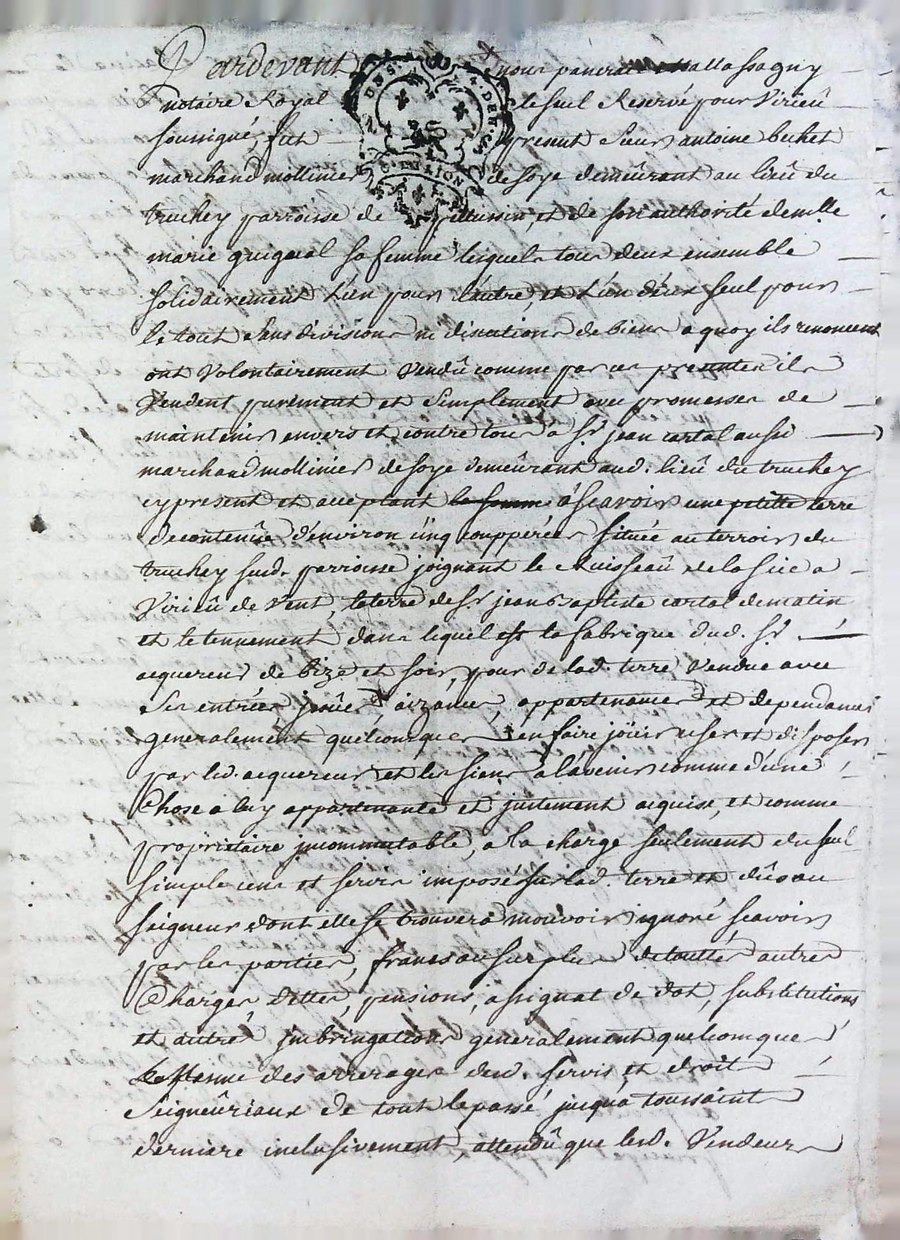 Pardevant nous pancrace allassagny
notaire Royal le seul Reservé pour Virieû
soussigné, fut present Sieur antoine bechet
marchand mollinier de soye demeûrant au lieû du
truchey parroisse de pellussin, et de son authorité demlle
marie guignal sa femme lesquels tous deux ensemble
solidairement L'un pour l'autre et L'un d'eux seul pour
le tout sans division ni discution de biens a quoy ils renoncent
ont Volontairement Vendû comme par ces presentes ils
Vendent purement et simplement avec promesses de
maintenir envers et contre tous à Sr jean cartal aussi
marchand mollinier de soye demeûrant aud. lieû du truchey
cy present et acceptant à scavoir une petitte terre
de contenûe d'environ cinq couppées située au terroir du
truchey susd. parroisse joignant le Ruisseaû de la scie a
Virieû de Vent, la terre de Sr jean baptiste cartal de matin
et le tennement dans lequel est la fabrique dud. Sr
acquereur de bize et soir, pour de lad. terre Vendue avec
Ses entrées, issûes, aizances, appartenances et dependances
generalement quelconques en faire joüir user et disposer
par led. acquereur et les siens à l'avenir comme d'une
Chose a luy appartenante et justement acquise, et comme
propriétaire jncommutable, a la charge seulement du seul
simple cens et servis imposés sur lad. terre et dûs au
seigneur dont elle se trouvera mouvoir, ignoré scavoir
par les parties, franc au surplus de touttes autres
Charges dettes, pensions, assignat de dot, substitutions
et autres jmbringations generalement quelconques
des arrerages desd. servis et droits
Seigneûriaux de tout le passé jusqua toussaint
derniere inclusivement, attendû que lesd. Vendeurs